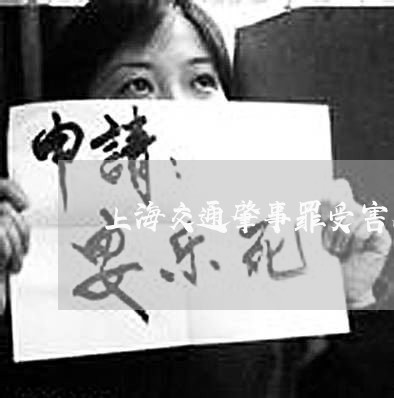 申請：
上海交通肇事罪受害
安乐死